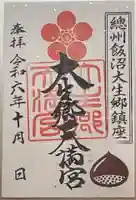 總州飯沼大生郷鎮座
大生郷天満宮
奉拝 令和六年十月 日